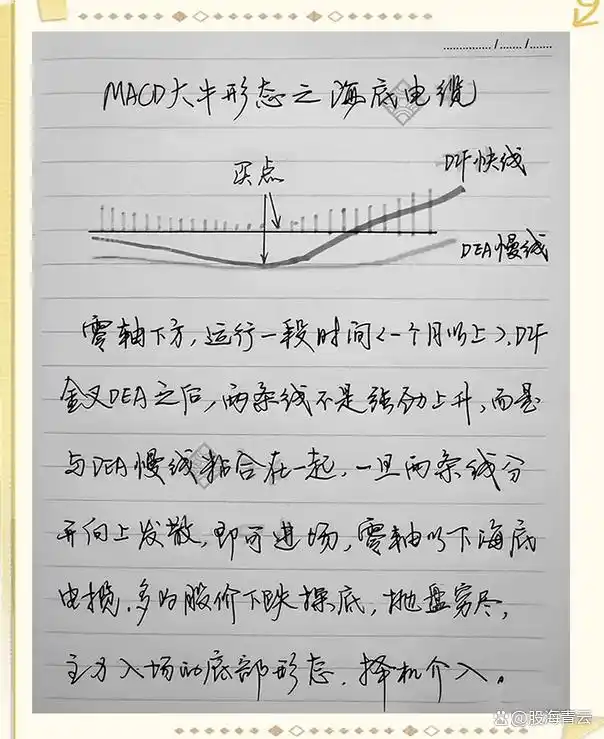 ............../......./.......
MACD大牛形态之海底电缆
买点
DIF快线
DEA慢线
零轴下方,运行一段时间<一个月以上>,DIF
金叉DEA之后,两条线不是强劲上升,而是
与DEA慢线粘合在一起,一旦两条线分
开向上发散,即可进场,零轴以下海底
电揽,多为股价下跌探底,抛盘穷尽,
主力入场的底部形态,择机介入。
@股海青云